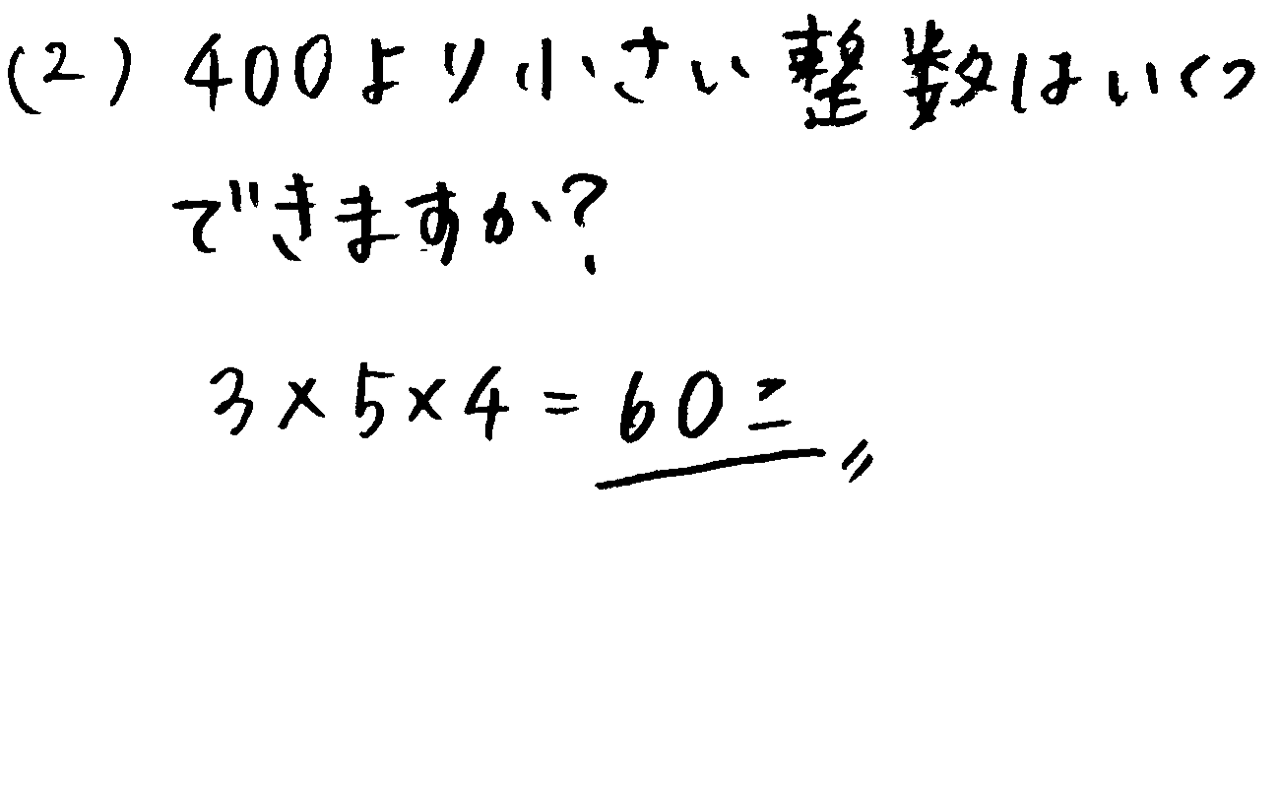 (2) 400より小さい整数はいくつ
できますか?
3×5×4=60こ